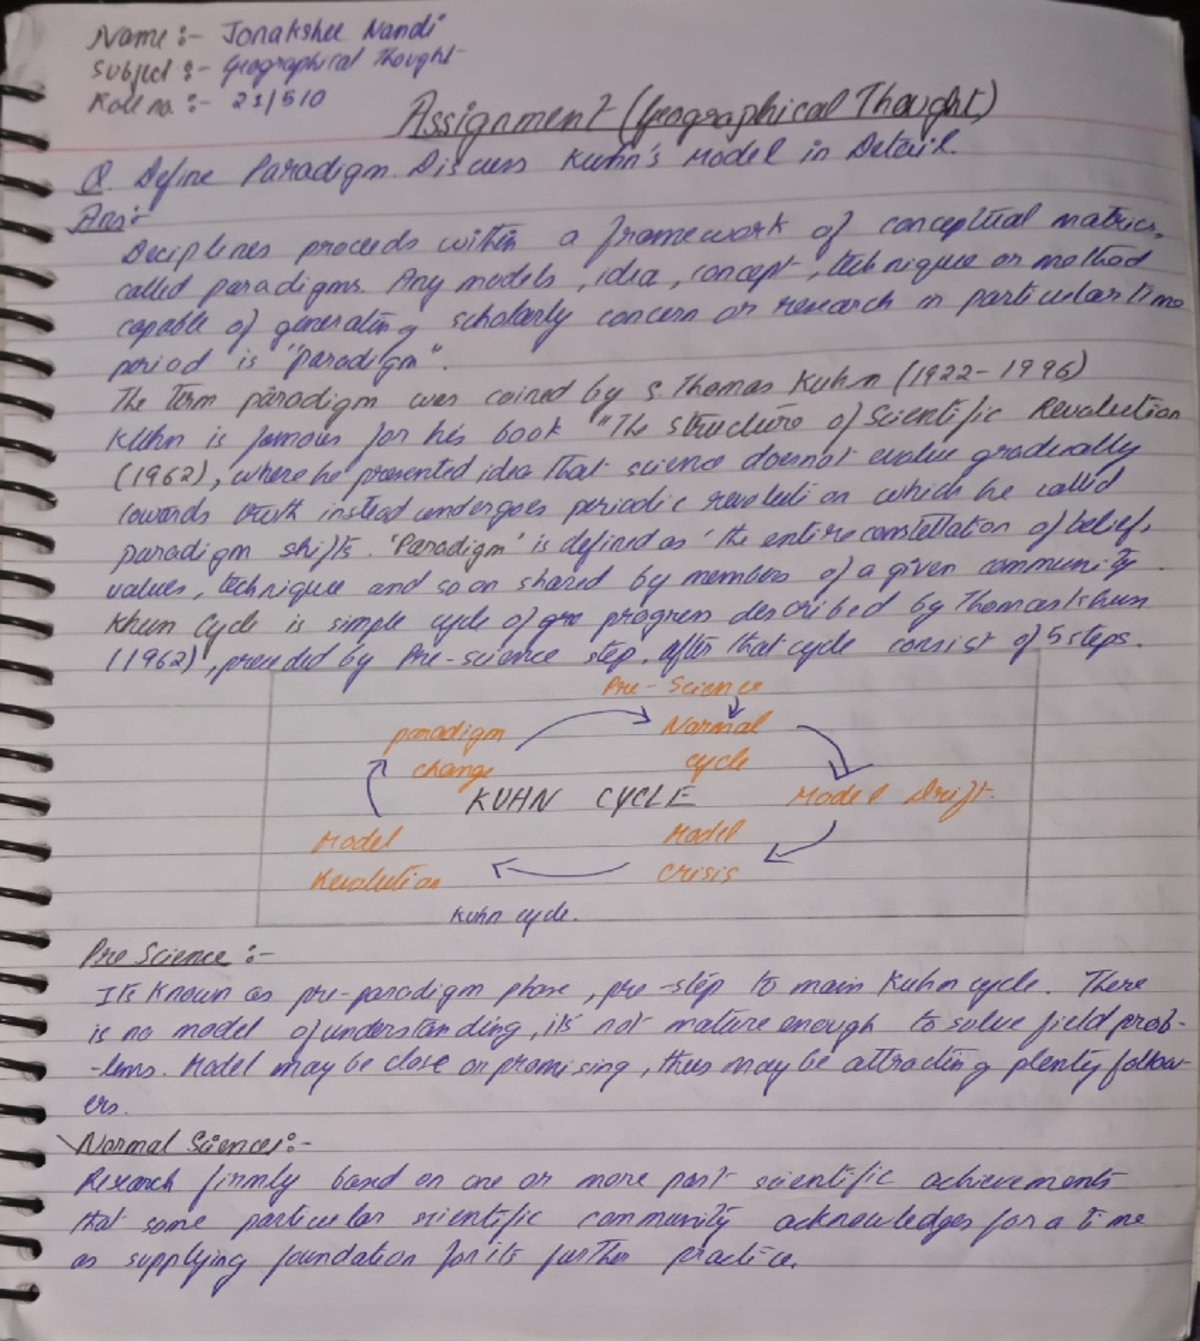 Name :- Jonakshee Nandi
Subject :- Geographical Thought
Roll no. :- 21/510
Assignment (Geographical Thought)
Q. Define Paradigm. Discuss Kuhn's Model in Detail.
Ans:-
Deciplines proceeds within a framework of conceptual matrics,
called paradigms. Any models, idea, concept, technique or method
capable of generating scholarly concern or research in particular time
period is "paradigm".
The Term paradigm was coined by S. Thomas Kuhn (1922-1996)
Kuhn is famous for his book "The structure of Scientific Revolution
(1962), where he presented idea that science doesnot evolve gradually
towards truth instead undergoes periodic revolution which he called
paradigm shifts. 'Paradigm' is defined as 'the entire constellation of belief,
values, technique and so on shared by members of a given community.
Khun Cycle is simple cycle of progress described by Thomas Khun
(1962), preceded by Pre-science step, after that cycle consist of 5 steps.
Pre-Science
paradigm change
Normal cycle
KUHN CYCLE
Model Drift.
Model Revolution
Model Crisis
Kuhn cycle.
Pre Science :-
Its known as pre-paradigm phase, pre-step to main Kuhn cycle. There
is no model of understanding, it's not mature enough to solve field prob-
-lems. Model may be close or promising, thus may be attracting plenty follow-
ers.
Normal Sciences:-
Research firmly based on one or more past scientific achievements
that some particular scientific community acknowledges for a time
as supplying foundation for its further practice.